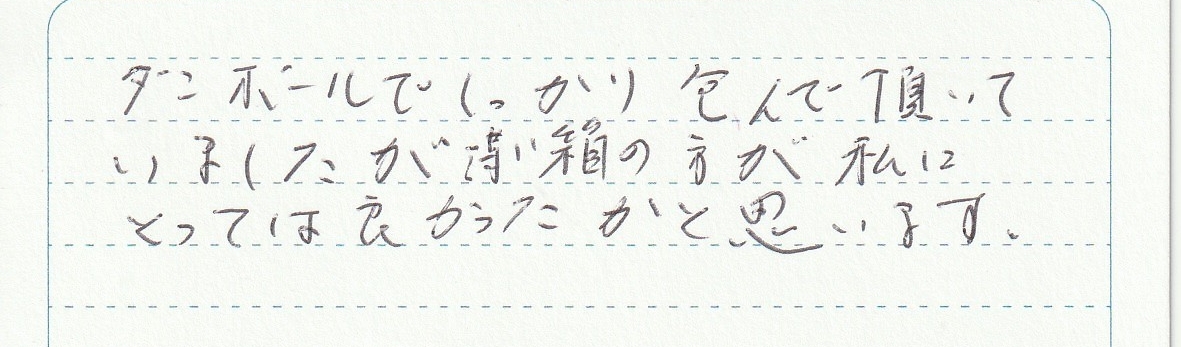 ダンボールでしっかり包んで頂いて
いましたが薄い箱の方が私に
とっては良かったかと思います。